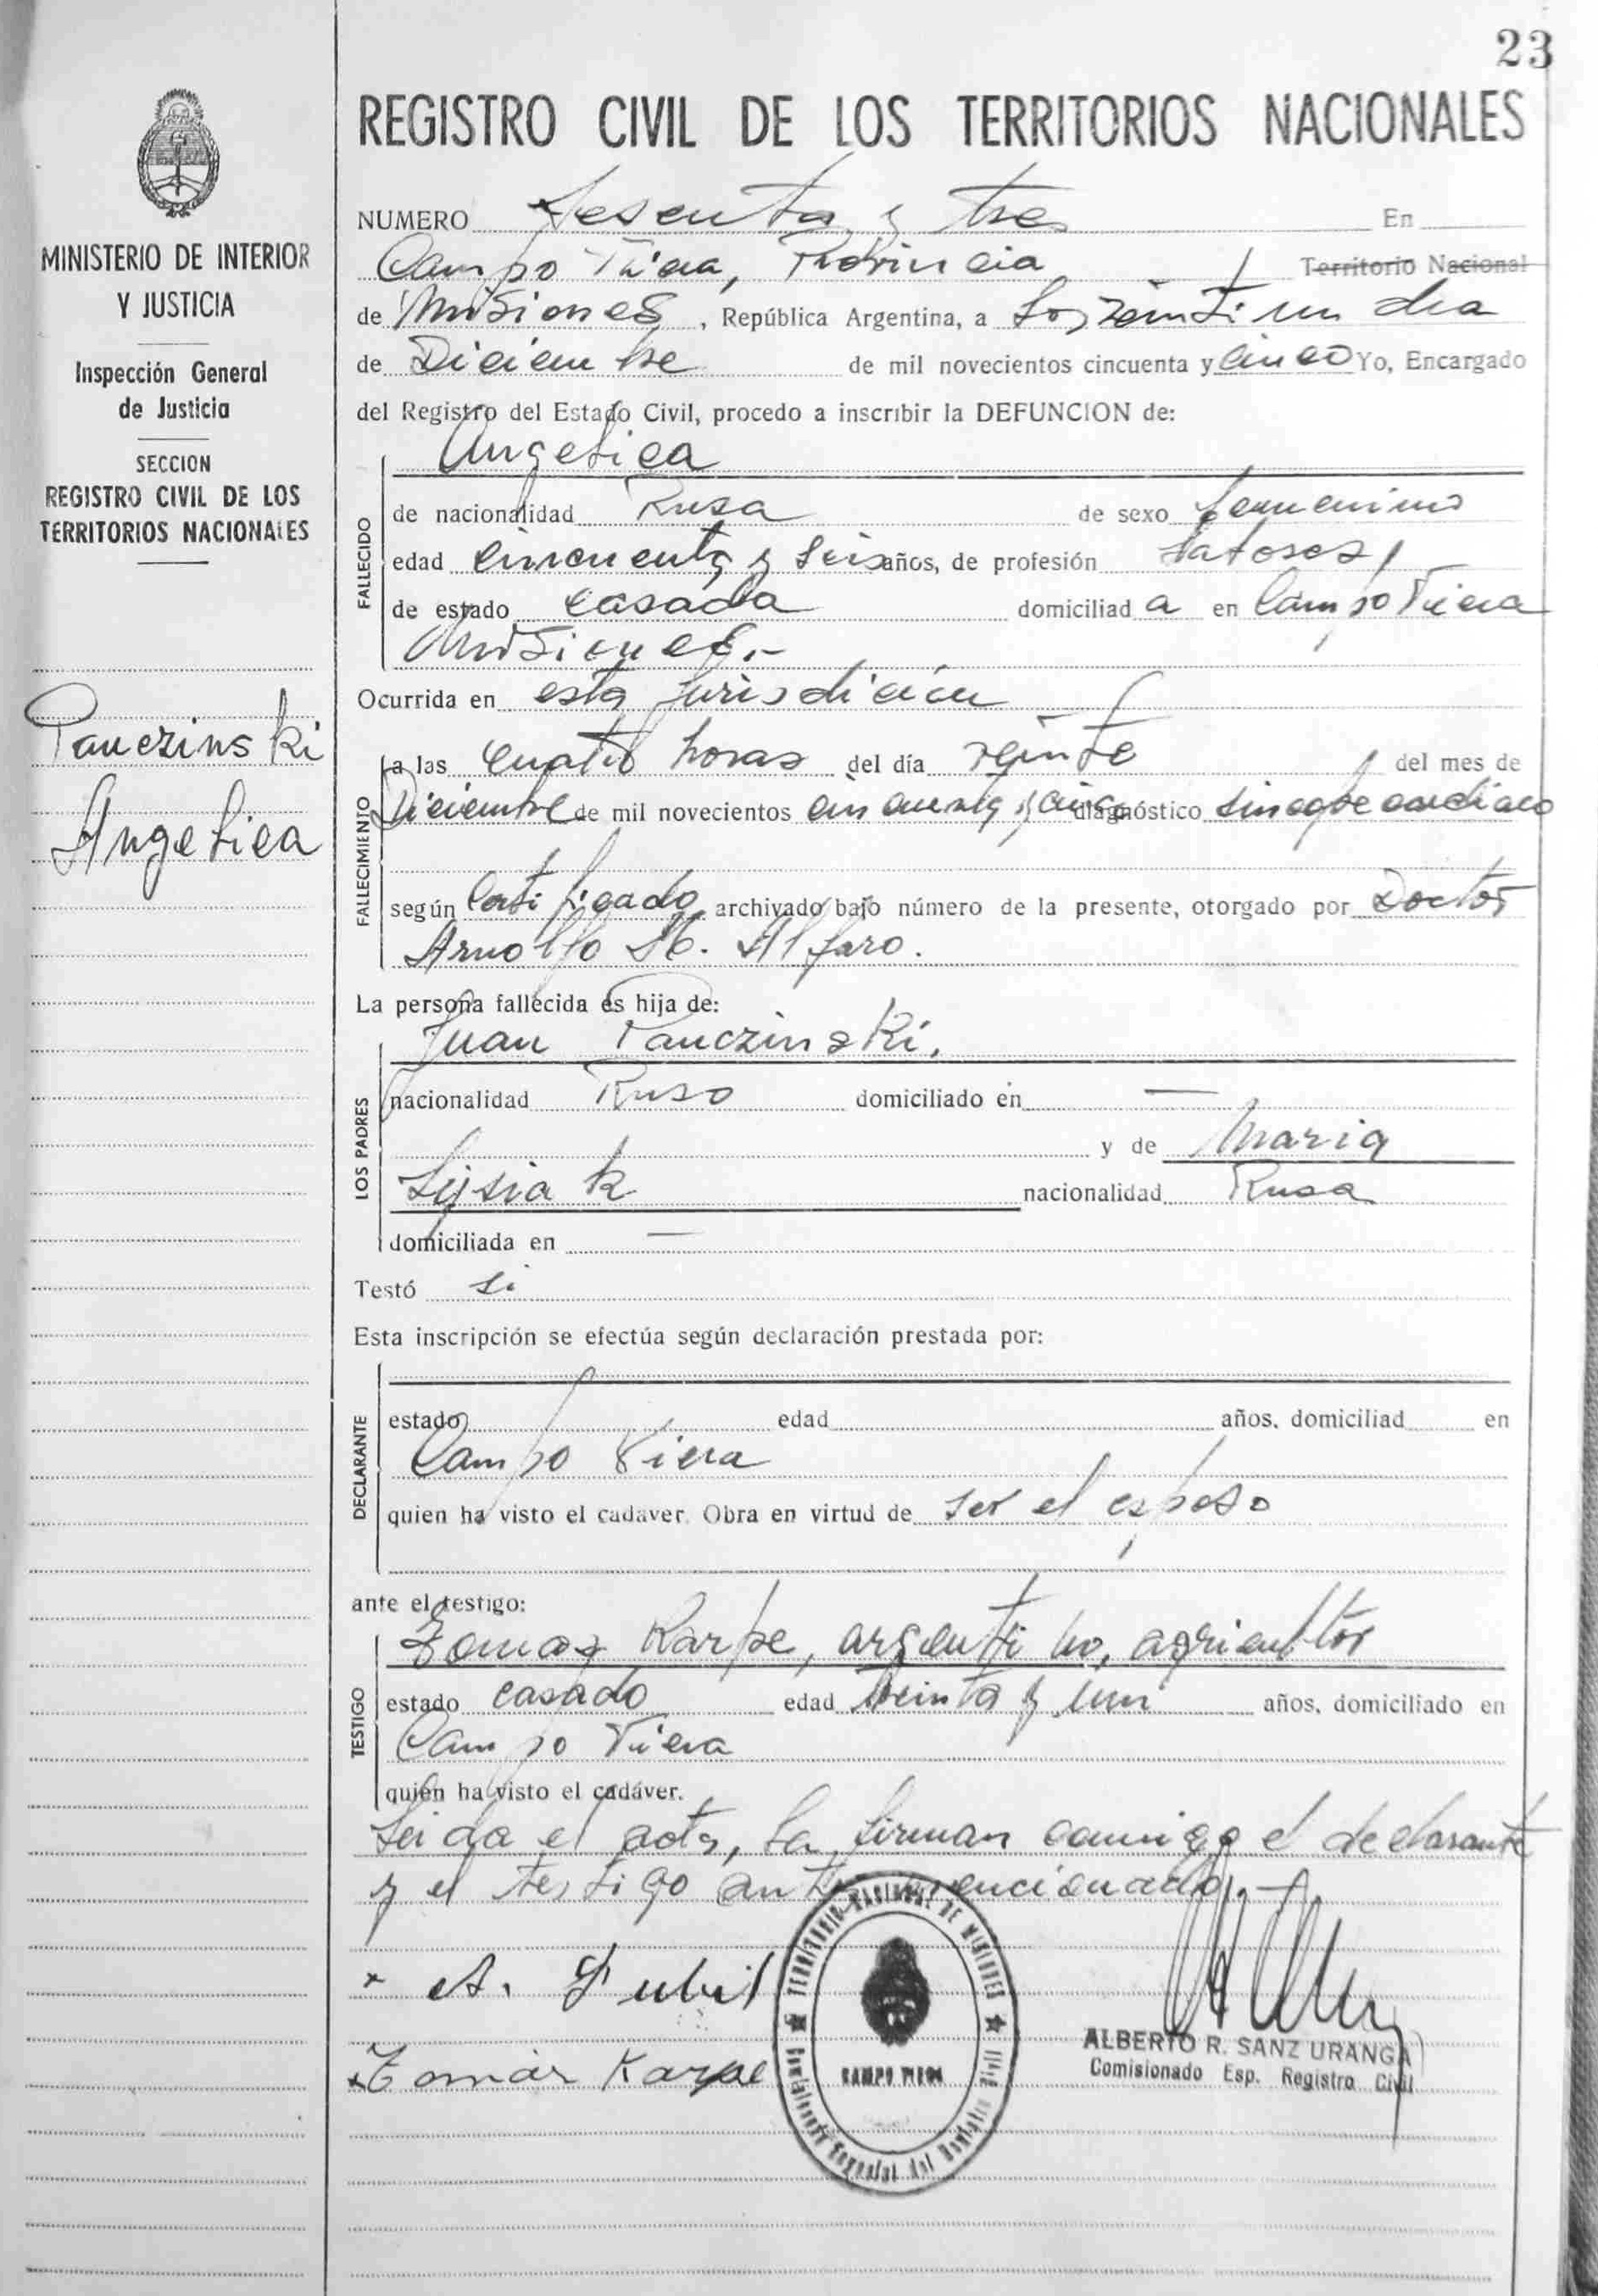 23
REGISTRO CIVIL DE LOS TERRITORIOS NACIONALES
MINISTERIO DE INTERIOR
Y JUSTICIA
Inspección General
de Justicia
SECCION
REGISTRO CIVIL DE LOS
TERRITORIOS NACIONALES
Panczinski
Angelica
NUMERO Sesenta y tres En
Campo Viera, Provincia Territorio Nacional
de Misiones, República Argentina, a los veintiun dia
de Diciembre de mil novecientos cincuenta y cinco Yo, Encargado
del Registro del Estado Civil, procedo a inscribir la DEFUNCION de:
Angelica
FALLECIDO
de nacionalidad Rusa de sexo femenino
edad cincuenta y seis años, de profesión labores,
de estado casada domiciliad a en Campo Viera
Misiones.-
Ocurrida en esta Jurisdicion
FALLECIMIENTO
a las cuatro horas del día veinte del mes de
Diciembre de mil novecientos cincuenta y cinco diagnóstico sincope cardiaco
según Certificado archivado bajo número de la presente, otorgado por Doctor
Arnolfo M. Alfaro.
La persona fallecida es hija de:
Juan Panczinski.
LOS PADRES
nacionalidad Ruso domiciliado en —
y de Maria
Lysiak nacionalidad Rusa
domiciliada en —
Testó si
Esta inscripción se efectúa según declaración prestada por:
DECLARANTE
estado edad años, domiciliad en
Campo Viera
quien ha visto el cadaver. Obra en virtud de ser el esposo
ante el testigo:
Tomas Karpe, argentino, agricultor
TESTIGO
estado casado edad treinta y un años, domiciliado en
Campo Viera
quien ha visto el cadáver.
Leida el acta, la firman conmigo el declarante
y el testigo antes mencionado.-
TERRITORIO NACIONAL DE MISIONES
CAMPO VIERA
x A. Dubil
x Tomas Karpe
ALBERTO R. SANZ URANGA
Comisionado Esp. Registro Civil